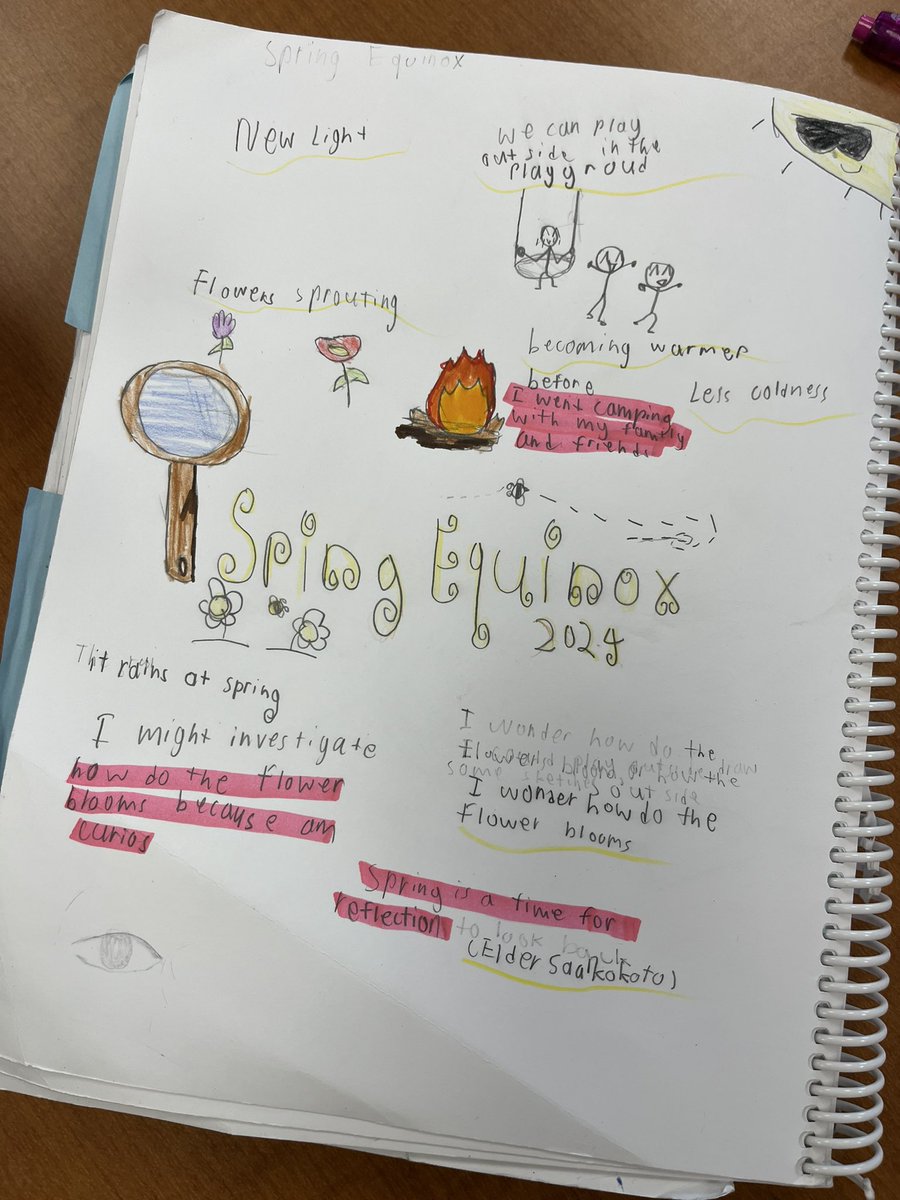 Spring Equinox
New Light
we can play
out side in the
playgroud
Flowers sprouting
becoming warmer
before
I went camping
with my family
and friends
Less coldness
Sping Equinox
2024
at spring
I might investigate
how do the flower
blooms because am
carios
I wonder how do the
some sketches out side
I wonder how do the
flower blooms
Spring is a time for
reflection to look back
(Elder Saakokoto)